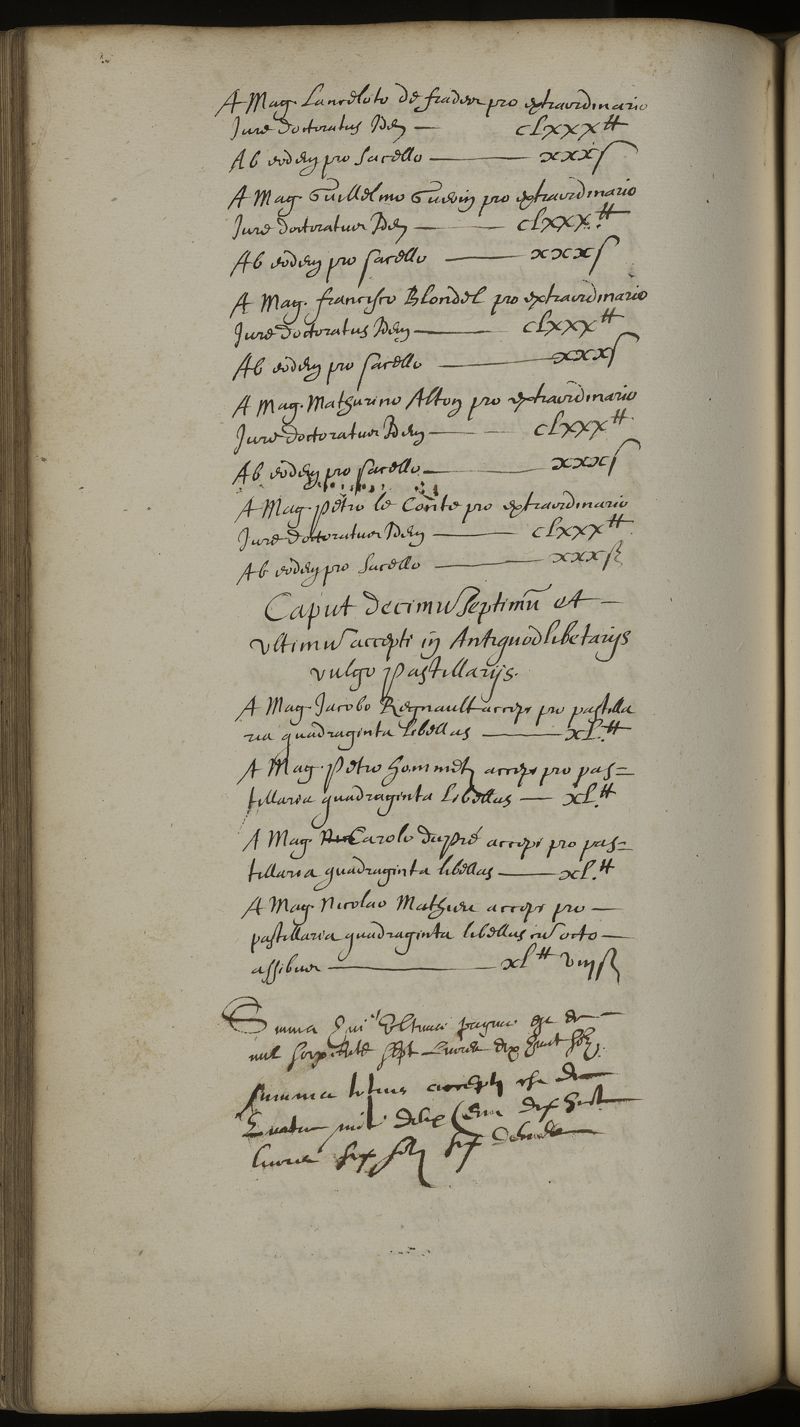 A Mag. Lanceloto de frades pro extraordinario
Jure doctoratus Idem — clxxx ℔
Ab eodem pro sacello — xxx ſ
A Mag. Guillelmo Guerin pro extraordinario
Jure doctoratus Idem — clxxx. ℔
Ab eodem pro sacello — xxx ſ
A Mag. francisco Blondel pro extraordinario
Jure doctoratus Idem — clxxx ℔
Ab eodem pro sacello — xxx ſ
A Mag. Mathurino Alton pro extraordinario
Jure doctoratus Idem — clxxx ℔
Ab eodem pro sacello — xxx ſ
A Mag. petro le Conte pro extraordinario
Jure doctoratus Idem — clxxx ℔
Ab eodem pro sacello — xxx ſ
Caput decimu septimū et —
ultimu accepti in Antiquodlibetarijs
vulgo pastillarijs.
A Mag. Jacobo Regnault accepi pro pastilla
ria quadraginta libellas — xl. ℔
A Mag. petro hommetz accepi pro pas=
tillaria quadraginta libellas — xl. ℔
A Mag. Carolo dupré accepi pro pas=
tillaria quadraginta libellas — xl. ℔
A Mag. Nicolao Mathieu accepi pro —
pastillaria quadraginta libellas cu octo —
assibus — xl ℔ viij ſ
Summa ultimae paginae est de —
mil sept livres dix huit solz
summa totius accepti est de —
quatre mil dix huit
livres six solz six deniers